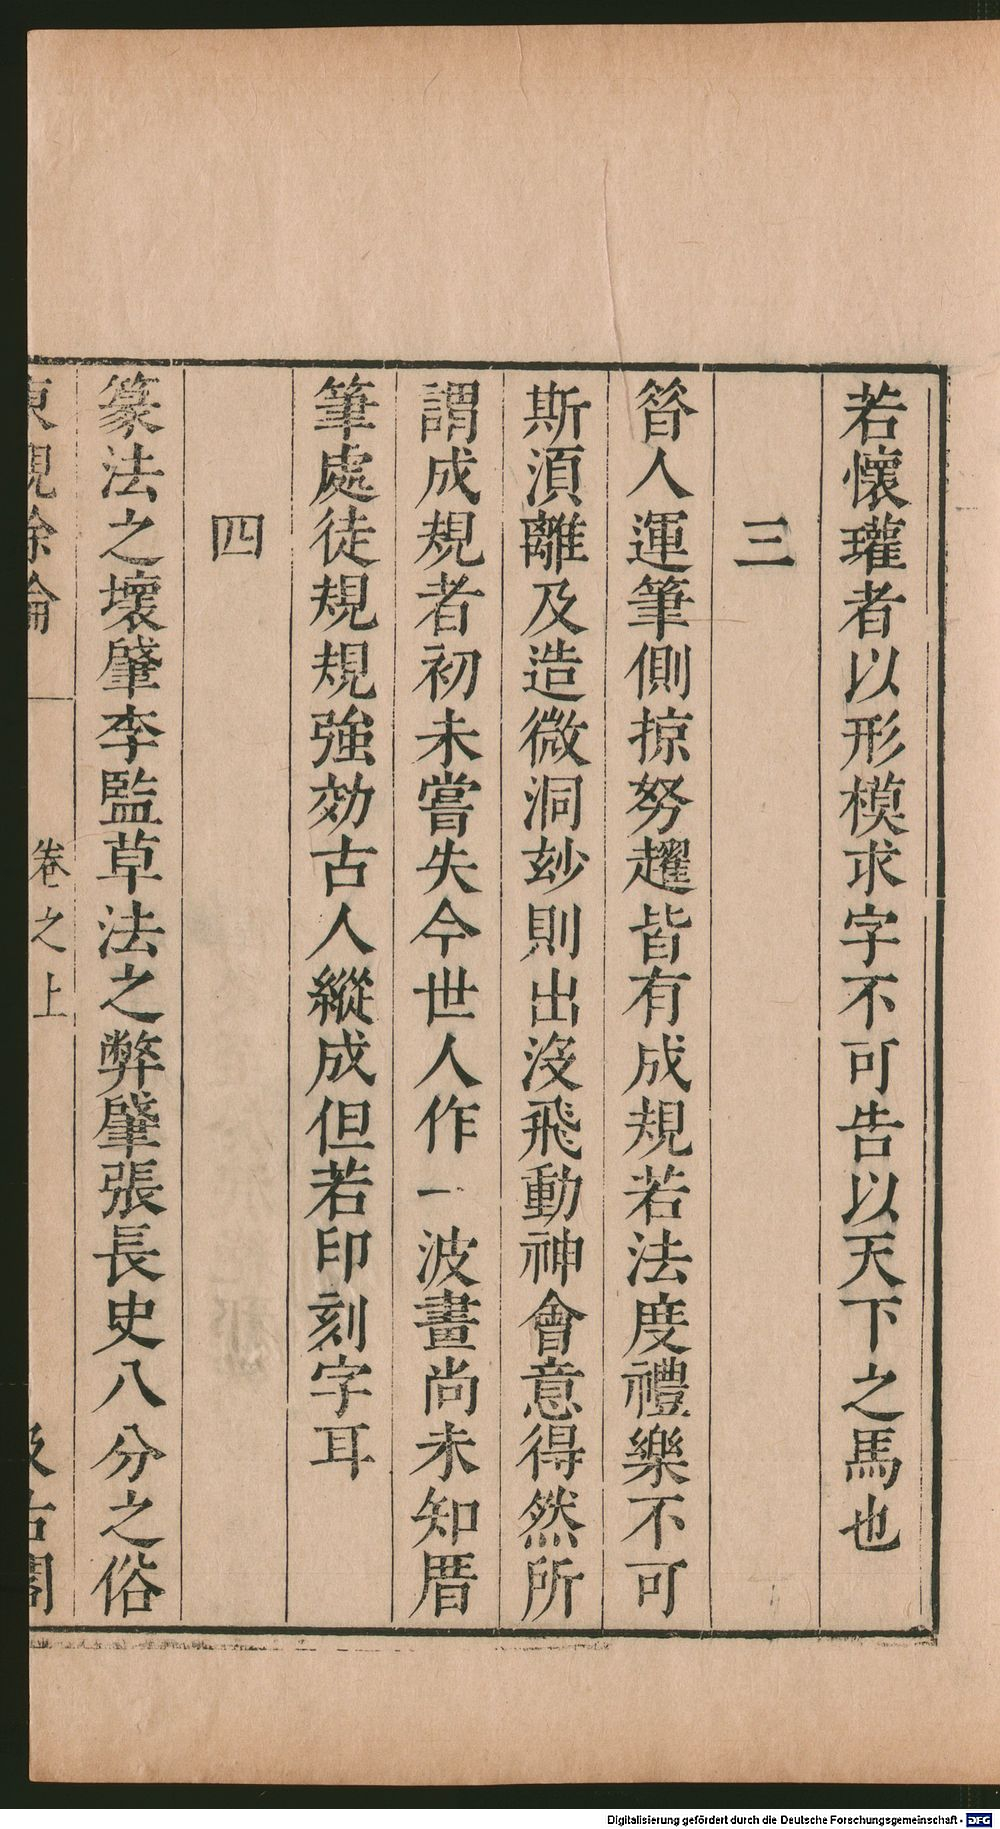 若懷瓘者以形模求字不可告以天下之馬也
三
晉人運筆側掠努趯皆有成規若法度禮樂不可
斯湏離及造微洞玅則出沒飛動神會意得然所
謂成規者初未嘗失今世人作一波畫尚未知厝
筆處徒規規強効古人縱成但若印刻字耳
四
篆法之壞肈李監草法之弊肈張長史八分之俗
東觀餘論
卷之上
汲古閣
Digitalisierung gefördert durch die Deutsche Forschungsgemeinschaft - DFG